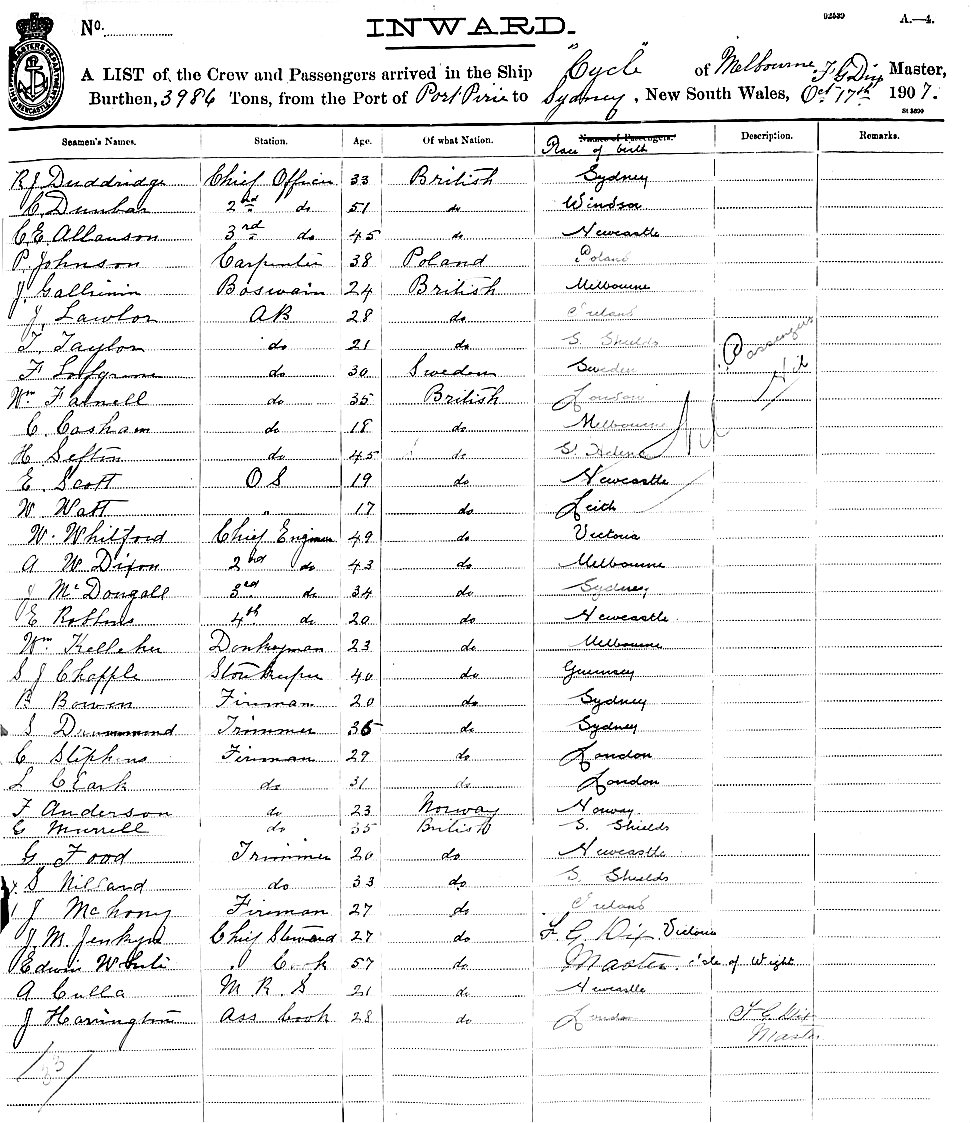 No. INWARD. 92539 A.—4.
A LIST of the Crew and Passengers arrived in the Ship "Cycle" of Melbourne F G Dix Master,
Burthen, 3986 Tons, from the Port of Port Pirie to Sydney, New South Wales, Oct 17th 1907.
St 3890
Seamen's Names. Station. Age. Of what Nation. Names of Passengers. Description. Remarks.
Place of birth
R J Duddridge Chief Officer 33 British Sydney
C. Dunbar 2nd do 51 do Windsor
C E Allanson 3rd do 45 do Newcastle
P. Johnson Carpenter 38 Poland Poland
J. Boswain 24 British Melbourne
J. Lawlor AB 28 do Ireland
T. Taylor do 21 do S. Shields Passengers
F do 30 Sweden Sweden Nil
Wm Farnell do 35 British London
C. Casham do 18 do Melbourne Nil
H Sefton do 45 do
E. Scott O S 19 do Newcastle
W Watt " 17 do Leith
W. Whitford Chief Engineer 49 do Victoria
A W Dixon 2nd do 43 do Melbourne
J McDougall 3rd do 34 do Sydney
E Robbins 4th do 20 do Newcastle
Wm Kelleher Donkeyman 23 do Melbourne
S J Chapple Storekeeper 40 do Guernsey
B Bowen Fireman 20 do Sydney
S Drummond Trimmer 36 do Sydney
C Stephens Fireman 29 do London
L Clark do 31 do London
F Anderson do 23 Norway Norway
E Murrell do 35 British S. Shields
G. Food Trimmer 20 do Newcastle
S do 33 do S. Shields
J Fireman 27 do Ireland
J. M. Jenkyn Chief Steward 27 do F. G. Dix Victoria
Edwin White " Cook 57 do Master. Isle of Wight
A Culla M R S 21 do Newcastle
J Harrington Ass Cook 28 do London F G Dix
Master
33